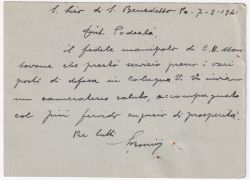 S. Siro di S. Benedetto Po - 7-8-1941
Podestà,
il fedele manipolo di C.N. Man
tovane che prestò servizio presso i vari
posti di difesa in Cologna V. Vi inviano
un cameratesco saluto, accompagnato
col più fervido augurio di prosperità.
Per tutti